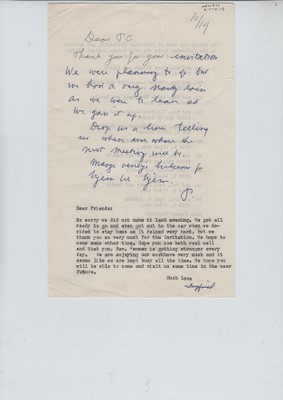 10/19
Dear P C
Thank you for your invitation
We were planning to go but
we had a very nasty rain
as we were to leave so
we gave it up.
Drop us a line telling
us when and where the
next meeting will be.
Many
P.
Dear Friends:
So sorry we did not make it last evening. We got all
ready to go and even got out to the car when we de-
cided to stay home as it rained very hard. But we
thank you so very much for the invitation. We hope to
come some other time. Hope you are both real well
and that you, Rev. is getting stronger every
day. We are enjoying our work very much and it
seems like we are kept busy all the time. We hope you
will be able to come and visit us some time in the near
future.
Much Love